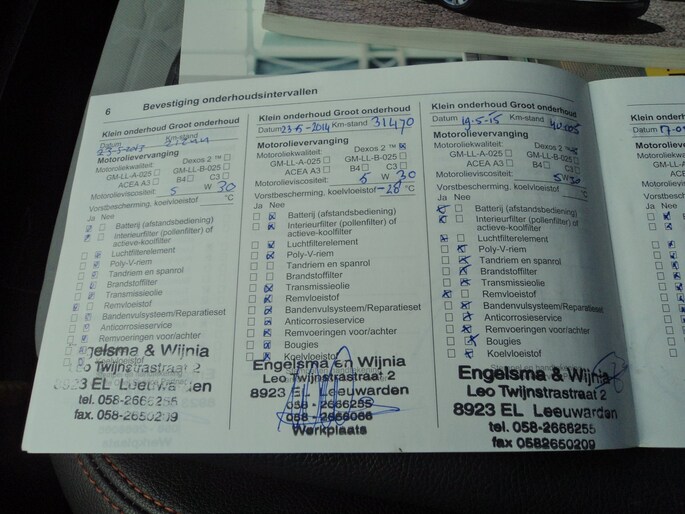 6 Bevestiging onderhoudsintervallen
Klein onderhoud Groot onderhoud
Datum Km-stand
23-5-2013
Motorolievervanging
Motoroliekwaliteit: Dexos 2 ™
GM-LL-A-025 GM-LL-B-025
ACEA A3 B4 C3
Motorolieviscositeit: 5 W 30
Vorstbescherming, koelvloeistof °C
Ja Nee
Batterij (afstandsbediening)
Interieurfilter (pollenfilter) of
actieve-koolfilter
Luchtfilterelement
Poly-V-riem
Tandriem en spanrol
Brandstoffilter
Transmissieolie
Remvloeistof
Bandenvulsysteem/Reparatieset
Anticorrosieservice
Remvoeringen voor/achter
Koelvloeistof
gelsma & Wijnia
Leo Twijnstrastraat 2
8923 EL Leeuwarden
tel. 058-2666255
fax. 058-2650209
Klein onderhoud Groot onderhoud
Datum 23-5-2014 Km-stand 31470
Motorolievervanging
Motoroliekwaliteit: Dexos 2 ™
GM-LL-A-025 GM-LL-B-025
ACEA A3 B4 C3
Motorolieviscositeit: 5 W 30
Vorstbescherming, koelvloeistof -28 °C
Ja Nee
Batterij (afstandsbediening)
Interieurfilter (pollenfilter) of
actieve-koolfilter
Luchtfilterelement
Poly-V-riem
Tandriem en spanrol
Brandstoffilter
Transmissieolie
Remvloeistof
Bandenvulsysteem/Reparatieset
Anticorrosieservice
Remvoeringen voor/achter
Bougies
Koelvloeistof
Engelsma en Wijnia
Leo Twijnstrastraat 2
8923 EL Leeuwarden
058 - 2666255
Werkplaats
Klein onderhoud Groot onderhoud
Datum 19-5-15 Km-stand
Motorolievervanging
Motoroliekwaliteit: Dexos 2 ™
GM-LL-A-025 GM-LL-B-025
ACEA A3 B4 C3
Motorolieviscositeit: 5 W 30
Vorstbescherming, koelvloeistof °C
Ja Nee
Batterij (afstandsbediening)
Interieurfilter (pollenfilter) of
actieve-koolfilter
Luchtfilterelement
Poly-V-riem
Tandriem en spanrol
Brandstoffilter
Transmissieolie
Remvloeistof
Bandenvulsysteem/Reparatieset
Anticorrosieservice
Remvoeringen voor/achter
Bougies
Koelvloeistof
Engelsma & Wijnia
Leo Twijnstrastraat 2
8923 EL Leeuwarden
tel. 058-2666255
fax 0582650209
Klein
Datum
Motor
Motoro
GM
Motor
Vorst
Ja N